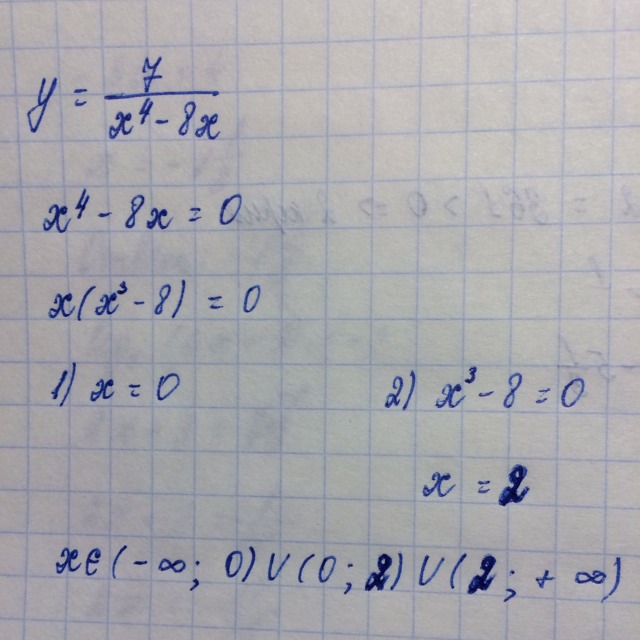 y = 7/(x⁴ - 8x)
x⁴ - 8x = 0
x(x³ - 8) = 0
1) x = 0 2) x³ - 8 = 0
x = 2
x ∈ (-∞; 0) ∪ (0; 2) ∪ (2; + ∞)